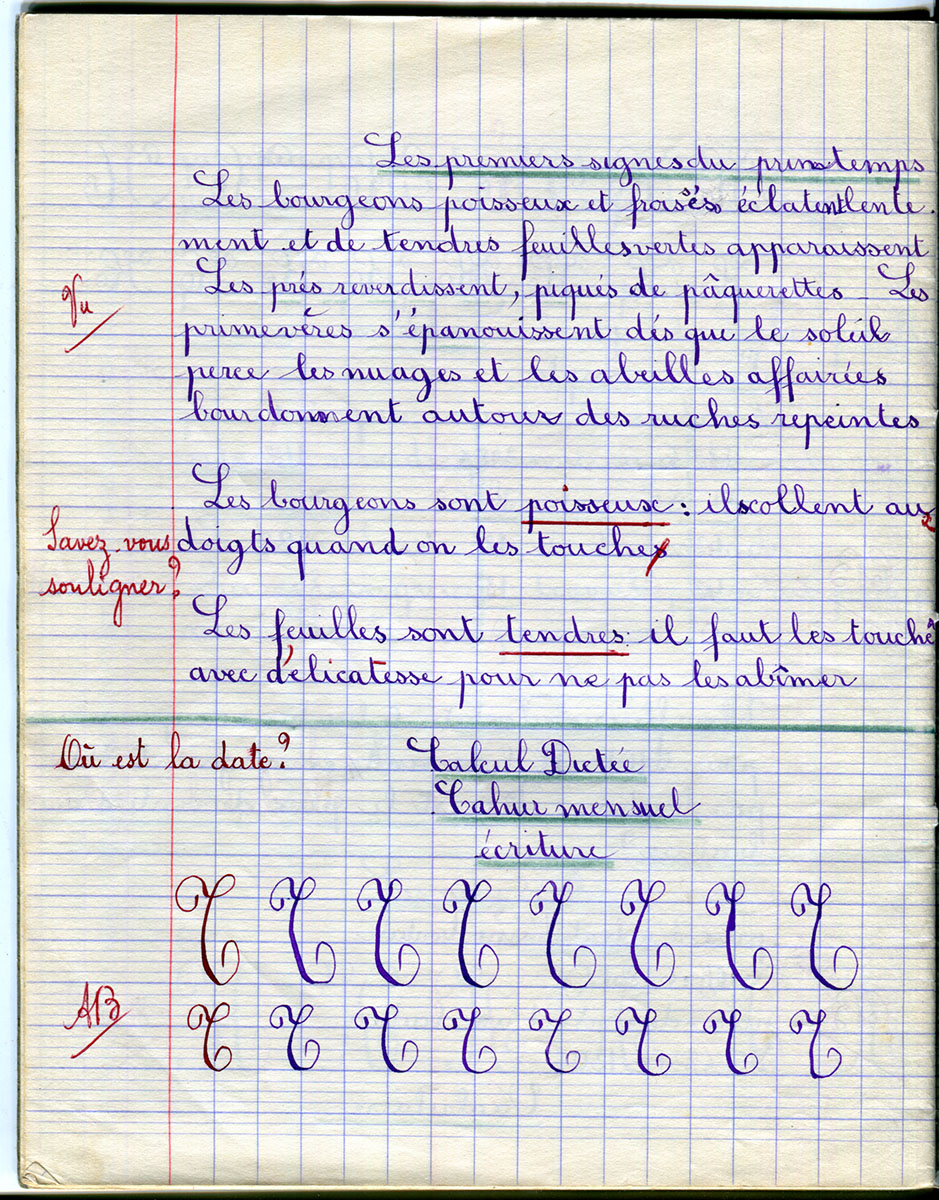 Les premiers signes du printemps
Les bourgeons poisseux et froissés éclatent lente-
ment et de tendres feuilles vertes apparaissent
Les prés reverdissent, piqués de pâquerettes - Les
Vu
primevères s'épanouissent dés que le soleil
perce les nuages et les abeilles affairées
bourdonnent autour des ruches repeintes
Les bourgeons sont poisseux : ils collent aux
Savez-vous souligner?
doigts quand on les touche
Les feuilles sont tendres : il faut les touché
avec délicatesse pour ne pas les abîmer
Où est la date?
Calcul Dictée
Cahier mensuel
écriture
T T T T T T T T
AB
T T T T T T T T